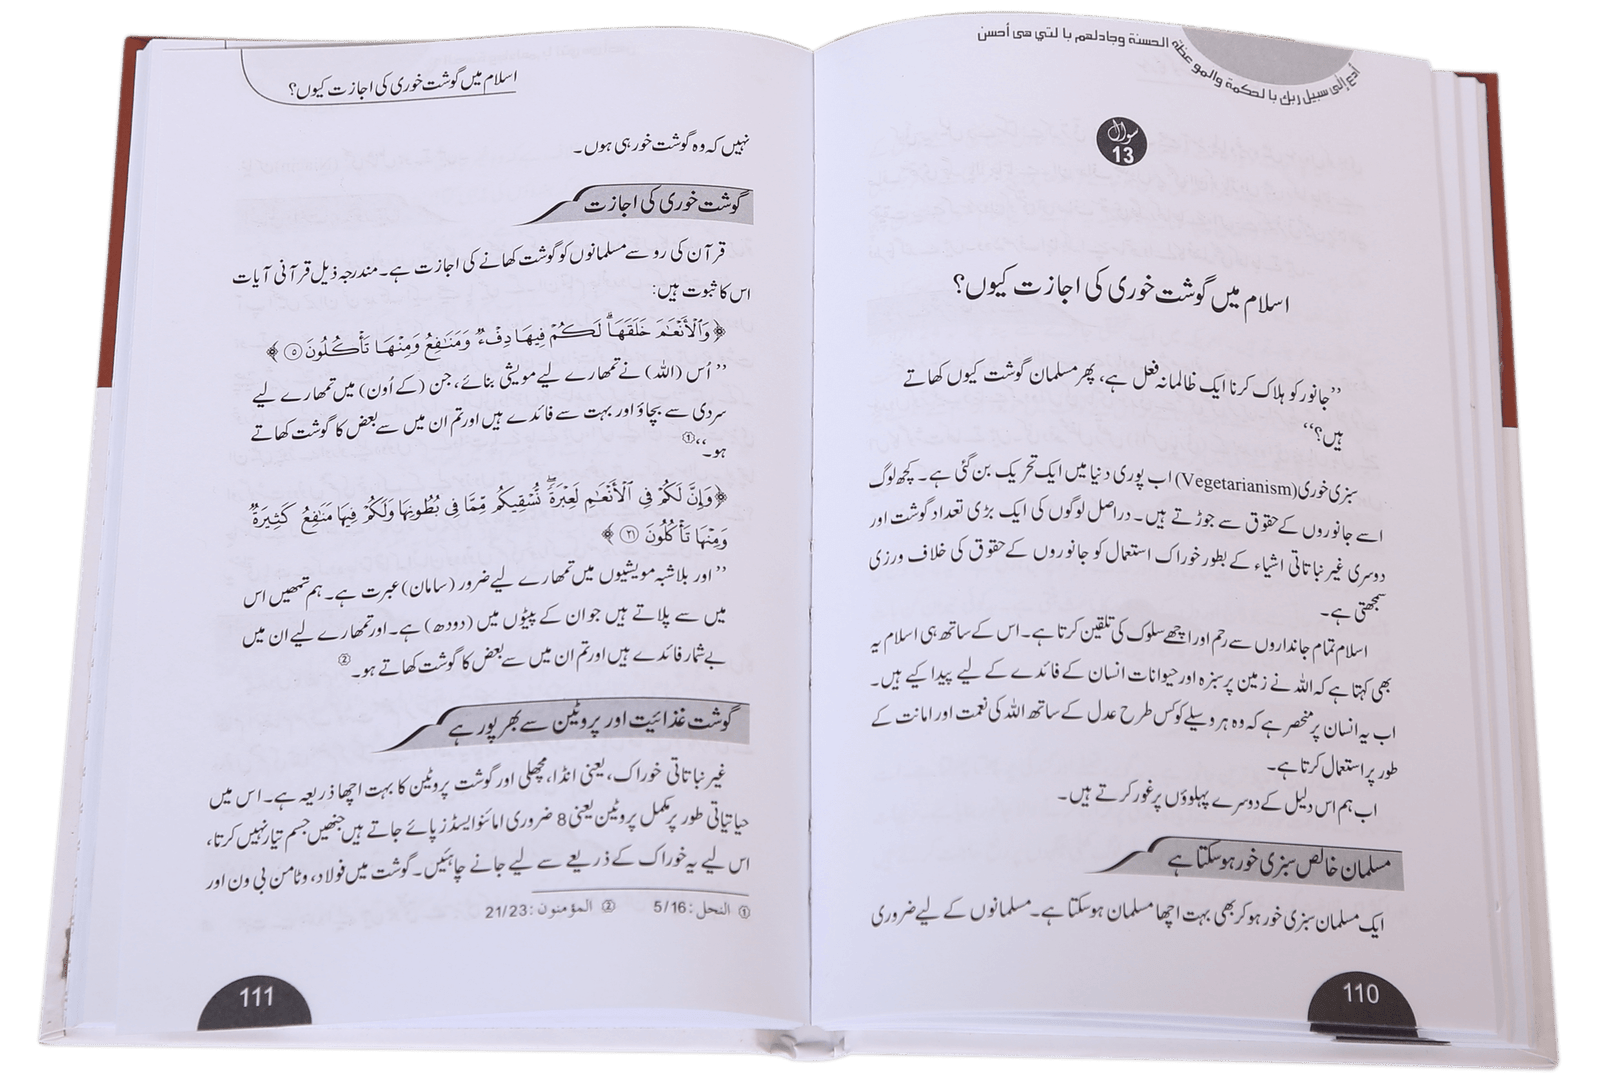 أدع إلى سبيل ربك بالحكمة والموعظة الحسنة وجادلهم بالتي هي أحسن
سوال
13
اسلام میں گوشت خوری کی اجازت کیوں؟
’’جانور کو ہلاک کرنا ایک ظالمانہ فعل ہے، پھر مسلمان گوشت کیوں کھاتے
ہیں؟‘‘
سبزی خوری (Vegetarianism) اب پوری دنیا میں ایک تحریک بن گئی ہے۔ کچھ لوگ
اسے جانوروں کے حقوق سے جوڑتے ہیں۔ دراصل لوگوں کی ایک بڑی تعداد گوشت اور
دوسری غیر نباتاتی اشیاء کے بطور خوراک استعمال کو جانوروں کے حقوق کی خلاف ورزی
سمجھتی ہے۔
اسلام تمام جانداروں سے رحم اور اچھے سلوک کی تلقین کرتا ہے۔ اس کے ساتھ ہی اسلام یہ
بھی کہتا ہے کہ اللہ نے زمین پر سبزہ اور حیوانات انسان کے فائدے کے لیے پیدا کیے ہیں۔
اب یہ انسان پر منحصر ہے کہ وہ ہر وسیلے کو کس طرح عدل کے ساتھ اللہ کی نعمت اور امانت کے
طور پر استعمال کرتا ہے۔
اب ہم اس دلیل کے دوسرے پہلوؤں پر غور کرتے ہیں۔
مسلمان خالص سبزی خور ہوسکتا ہے
ایک مسلمان سبزی خور ہو کر بھی بہت اچھا مسلمان ہوسکتا ہے۔ مسلمانوں کے لیے ضروری
110
اسلام میں گوشت خوری کی اجازت کیوں؟
نہیں کہ وہ گوشت خور ہی ہوں۔
گوشت خوری کی اجازت
قرآن کی رو سے مسلمانوں کو گوشت کھانے کی اجازت ہے۔ مندرجہ ذیل قرآنی آیات
اس کا ثبوت ہیں:
﴿وَٱلۡأَنۡعَٰمَ خَلَقَهَاۖ لَكُمۡ فِيهَا دِفۡءٞ وَمَنَٰفِعُ وَمِنۡهَا تَأۡكُلُونَ ۝٥﴾
’’اُس (اللہ) نے تمھارے لیے مویشی بنائے، جن (کے اُون) میں تمھارے لیے
سردی سے بچاؤ اور بہت سے فائدے ہیں اور تم ان میں سے بعض کا گوشت کھاتے
ہو۔‘‘①
﴿وَإِنَّ لَكُمۡ فِي ٱلۡأَنۡعَٰمِ لَعِبۡرَةٗۖ نُّسۡقِيكُم مِّمَّا فِي بُطُونِهَا وَلَكُمۡ فِيهَا مَنَٰفِعُ كَثِيرَةٞ
وَمِنۡهَا تَأۡكُلُونَ ۝٢١﴾
’’اور بلاشبہ مویشیوں میں تمھارے لیے ضرور (سامان) عبرت ہے۔ ہم تمھیں اس
میں سے پلاتے ہیں جو ان کے پیٹوں میں (دودھ) ہے۔ اور تمھارے لیے ان میں
بے شمار فائدے ہیں اور تم ان میں سے بعض کا گوشت کھاتے ہو۔②
گوشت غذائیت اور پروٹین سے بھرپور ہے
غیر نباتاتی خوراک، یعنی انڈا، مچھلی اور گوشت پروٹین کا بہت اچھا ذریعہ ہے۔ اس میں
حیاتیاتی طور پر مکمل پروٹین یعنی 8 ضروری امائنو ایسڈز پائے جاتے ہیں جنھیں جسم تیار نہیں کرتا،
اس لیے یہ خوراک کے ذریعے سے لیے جانے چاہئیں۔ گوشت میں فولاد، وٹامن بی ون اور
① النحل: 5/16 ② المؤمنون: 21/23
111